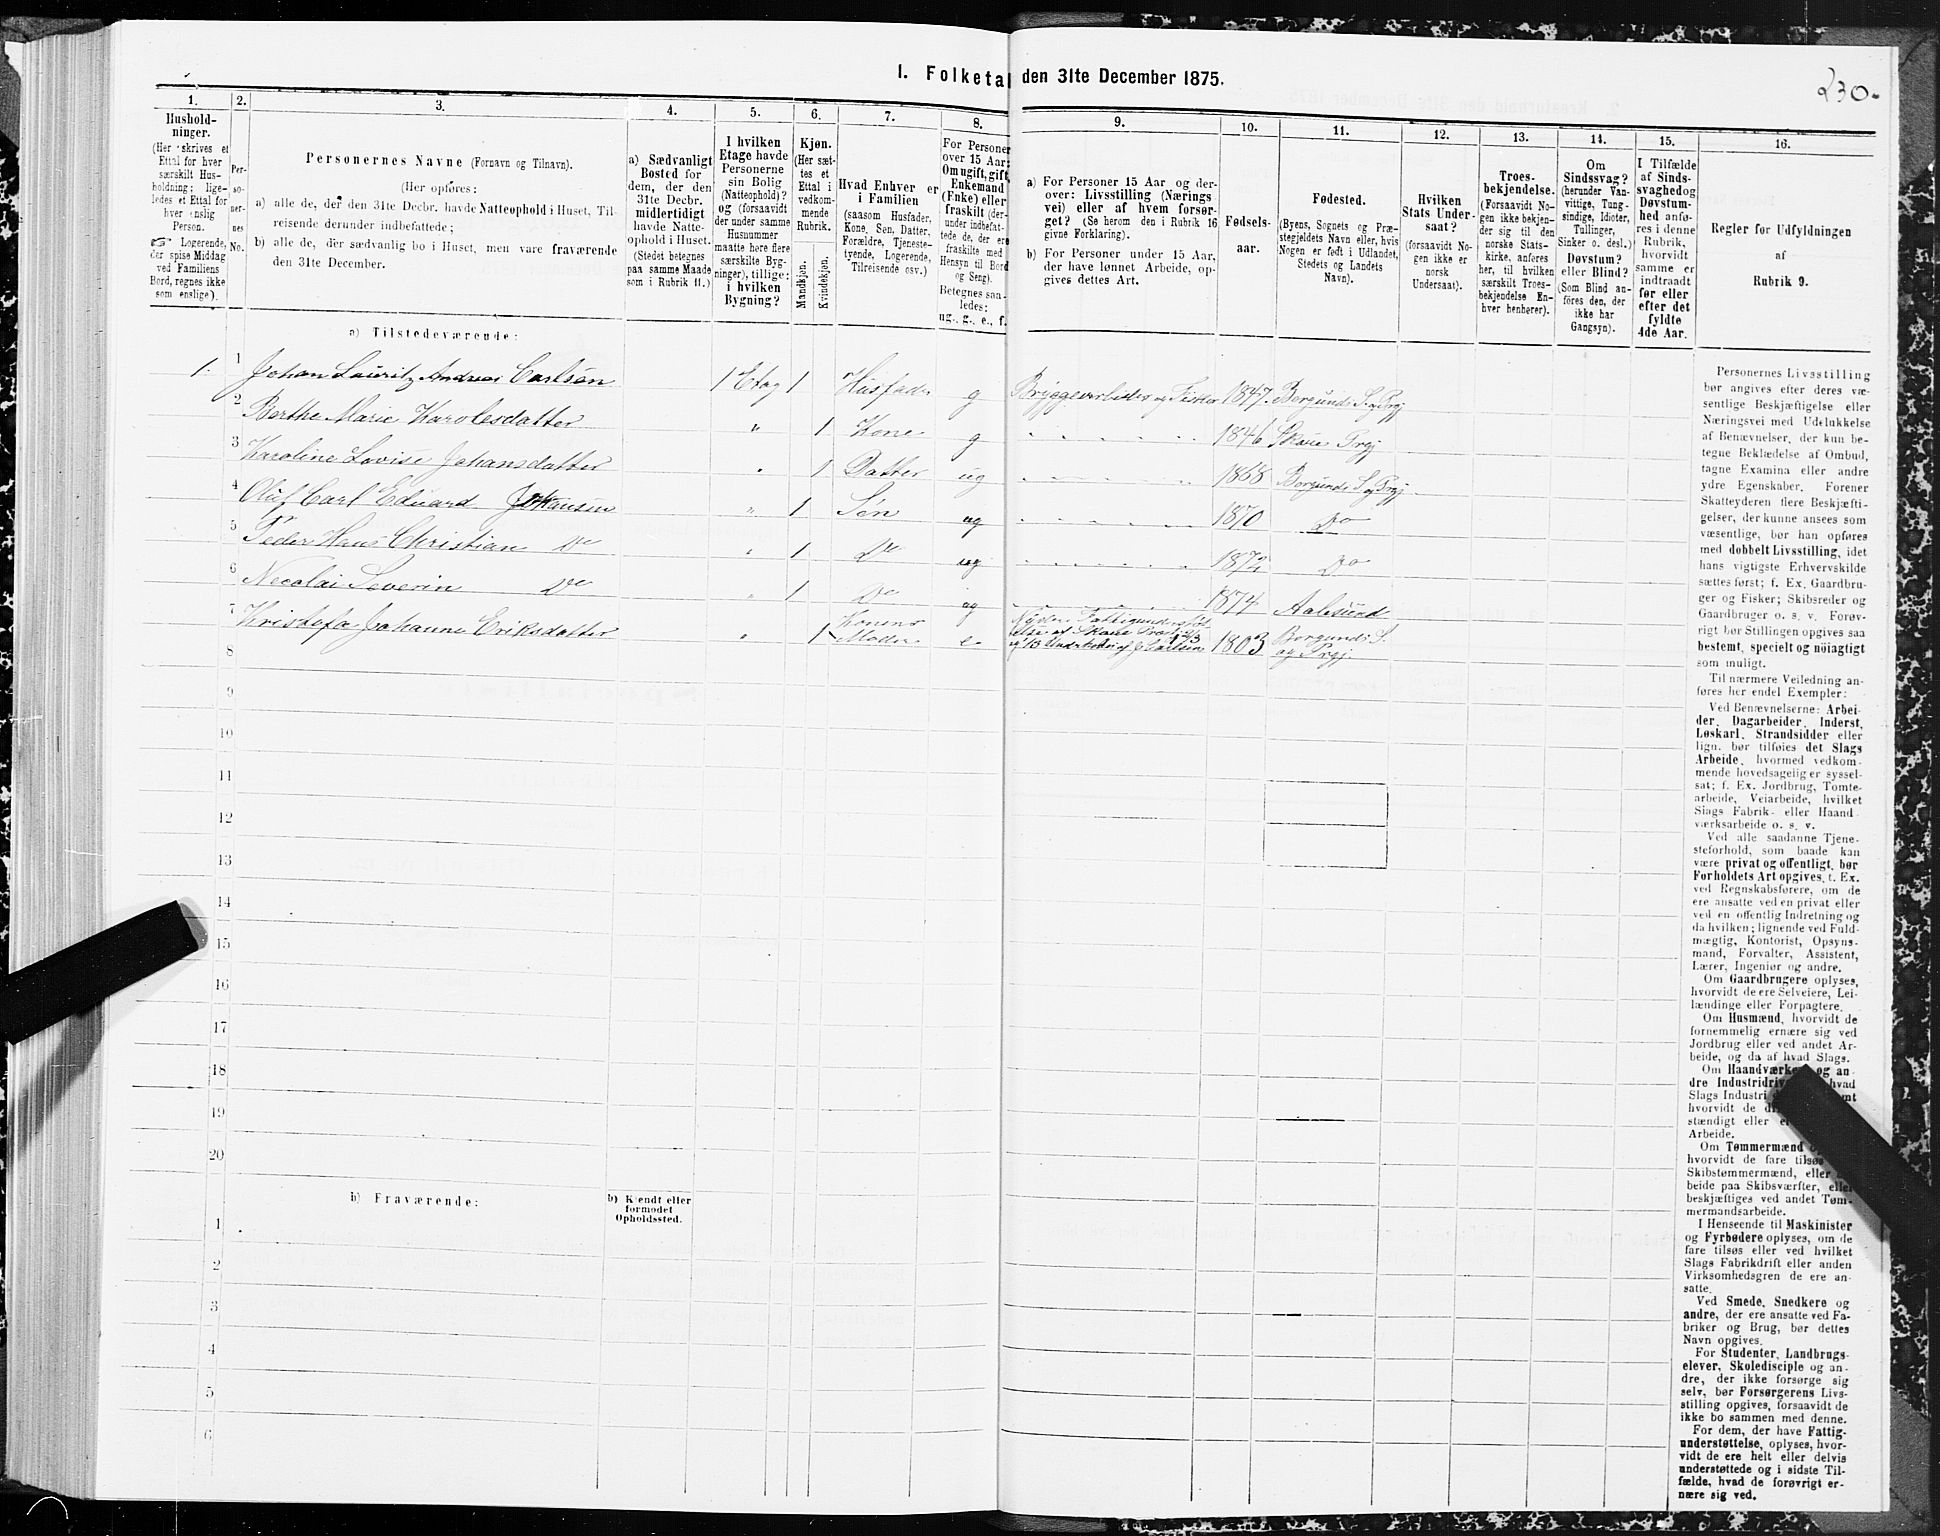 I. Folketal den 31te December 1875.
230.
1.
Hushold-
ninger.
(Her skrives et
Ettal for hver
særskilt Hus-
holdning; lige-
ledes et Ettal for
hver enslig
Person.
☞ Logerende,
der spise Middag
ved Familiens
Bord, regnes ikke
som enslige).
2.
Per-
so-
ner-
nes
No.
3.
Personernes Navne (Fornavn og Tilnavn).
(Her opføres:
a) alle de, der den 31te Decbr. havde Natteophold i Huset, Til-
reisende derunder indbefattede;
b) alle de, der sædvanlig bo i Huset, men vare fraværende
den 31te December.
4.
a) Sædvanligt
Bosted for
dem, der den
31te Decbr.
midlertidigt
havde Natte-
ophold i Huset.
(Stedet betegnes
paa samme Maade
som i Rubrik 11.)
5.
I hvilken
Etage havde
Personerne
sin Bolig
(Natteophold)?
og (forsaavidt
der under samme
Husnummer
maatte høre flere
særskilte Byg-
ninger), tillige:
i hvilken
Bygning?
6.
Kjøn.
(Her sæt-
tes et
Ettal i
vedkom-
mende
Rubrik.
Mandkjøn.
Kvindekjøn.
7.
Hvad Enhver er
i Familien
(saasom Husfader,
Kone, Søn, Datter,
Forældre, Tjeneste-
tyende, Logerende,
Tilreisende osv.)
8.
For Personer
over 15 Aar:
Om ugift, gift,
Enkemand
(Enke) eller
fraskilt (der-
under indbefat-
tede de, der ere
fraskilte med
Hensyn til Bord
og Seng).
Betegnes saa-
ledes:
ug., g., e., f.
9.
a) For Personer 15 Aar og der-
over: Livsstilling (Nærings-
vei) eller af hvem forsør-
get? (Se herom den i Rubrik 16
givne Forklaring).
b) For Personer under 15 Aar,
der have lønnet Arbeide, op-
gives dettes Art.
10.
Fødsels-
aar.
11.
Fødested.
(Byens, Sognets og Præ-
stegjeldets Navn eller, hvis
Nogen er født i Udlandet,
Stedets og Landets
Navn).
12.
Hvilken
Stats Under-
saat?
(forsaavidt No-
gen ikke er
norsk
Undersaat).
13.
Troes-
bekjendelse.
(Forsaavidt No-
gen ikke bekjen-
der sig til den
norske Stats-
kirke, anføres
her, til hvilken
særskilt Troes-
bekjendelse En-
hver henhører).
14.
Om
Sindssvag?
(herunder Van-
vittige, Tung-
sindige, Idioter,
Tullinger,
Sinker o. desl.)
Døvstum?
eller Blind?
(Som Blind an-
føres den, der
ikke har
Gangsyn).
15.
I Tilfælde
af Sinds-
svaghed og
Døvstum-
hed anfø-
res i denne
Rubrik,
hvorvidt
samme er
indtraadt
før eller
efter det
fyldte
4de Aar.
16.
Regler for Udfyldningen
af
Rubrik 9.
a) Tilstedeværende:
1. 1 Johan Lauritz Andreas Carlsen 1 Etag 1 Husfader g Bryggearbeider og Fisker 1847. Borgunds S. og Prgj
2 Berthe Marie Karolesdatter " 1 Kone g 1846 Skoue Prgj
3 Karoline Lovise Johansdatter " 1 Datter ug 1868 Borgunds S. og Prgj.
4 Oluf Carl Edvard Johansen " 1 Søn ug 1870 Do
5 Peder Hans Christian Do " 1 Do ug 1872 Do
6 Necolai Severin Do " 1 Do ug 1874 Aalesund
7 Kristofa Johanne Eriksdatter " 1 Konens Moder e Nyder Fattigunderstøt
telse af Skoue Præstgj 2/3
og 1/3 Underholdes af J. Carlsen 1803 Borgunds S. og Prgj.
8
9
10
11
12
13
14
15
16
17
18
19
20
b) Fraværende:
b) Kjendt eller
formodet
Opholdssted.
1
2
3
4
5
6
Personernes Livsstilling
bør angives efter deres væ-
sentlige Beskjæftigelse eller
Næringsvei med Udelukkelse
af Benævnelser, der kun be-
tegne Beklædelse af Ombud,
tagne Examina eller andre
ydre Egenskaber. Forener
Skatteyderen flere Beskjæfti-
gelser, der kunne ansees som
væsentlige, bør han opføres
med dobbelt Livsstilling, idet
hans vigtigste Erhvervskilde
sættes først; f. Ex. Gaardbru-
ger og Fisker; Skibsreder og
Gaardbruger o. s. v. Forøv-
rigt bør Stillingen opgives saa
bestemt, specielt og nöiagtigt
som muligt.
Til nærmere Veiledning an-
føres her endel Exempler:
Ved Benævnelserne: Arbei-
der, Dagarbeider, Inderst,
Løskarl, Strandsidder eller
lign. bør tilføies det Slags
Arbeide, hvormed vedkom-
mende hovedsagelig er syssel-
sat; f. Ex. Jordbrug, Tomte-
arbeide, Veiarbeide, hvilket
Slags Fabrik- eller Haand
værksarbeide o. s. v.
Ved alle saadanne Tjene-
steforhold, som baade kan
være privat og offentligt, bør
Forholdets Art opgives, f. Ex.
ved Regnskabsførere, om de
ere ansatte ved en privat eller
ved en offentlig Indretning og
da hvilken; lignende ved Fuld-
mægtig, Kontorist, Opsyns-
mand, Forvalter, Assistent,
Lærer, Ingeniør og andre.
Om Gaardbrugere oplyses,
hvorvidt de ere Selveiere, Lei-
lændinge eller Forpagtere.
Om Husmænd, hvorvidt de
fornemmelig ernære sig ved
Jordbrug eller ved andet Ar-
beide, og da af hvad Slags.
Om Haandværkere og an-
dre Industridri hvad
Slags Industri
hvorvidt de
stændigt eller
Arbeide.
Om Tømmermænd
hvorvidt de fare tilsøs
Skibstømmermænd, eller
beide paa Skibsværfter, eller
beskjæftiges ved andet Tøm-
mermandsarbeide.
I Henseende til Maskinister
og Fyrbødere oplyses, om de
fare tilsøs eller ved hvilket
Slags Fabrikdrift eller anden
Virksomhedsgren de ere an-
satte.
Ved Smede, Snedkere og
andre, der ere ansatte ved Fa-
briker og Brug, bør dettes
Navn opgives.
For Studenter, Landbrugs-
elever, Skoledisciple og an-
dre, der ikke forsørge sig
selv, bør Forsørgerens Livs-
stilling opgives, forsaavidt de
ikke bo sammen med denne.
For dem, der have Fattig-
understøttelse, oplyses, hvor-
vidt de ere helt eller delvis
understøttede og i sidste Til-
fælde, hvad de forøvrigt er-
nære sig ved.